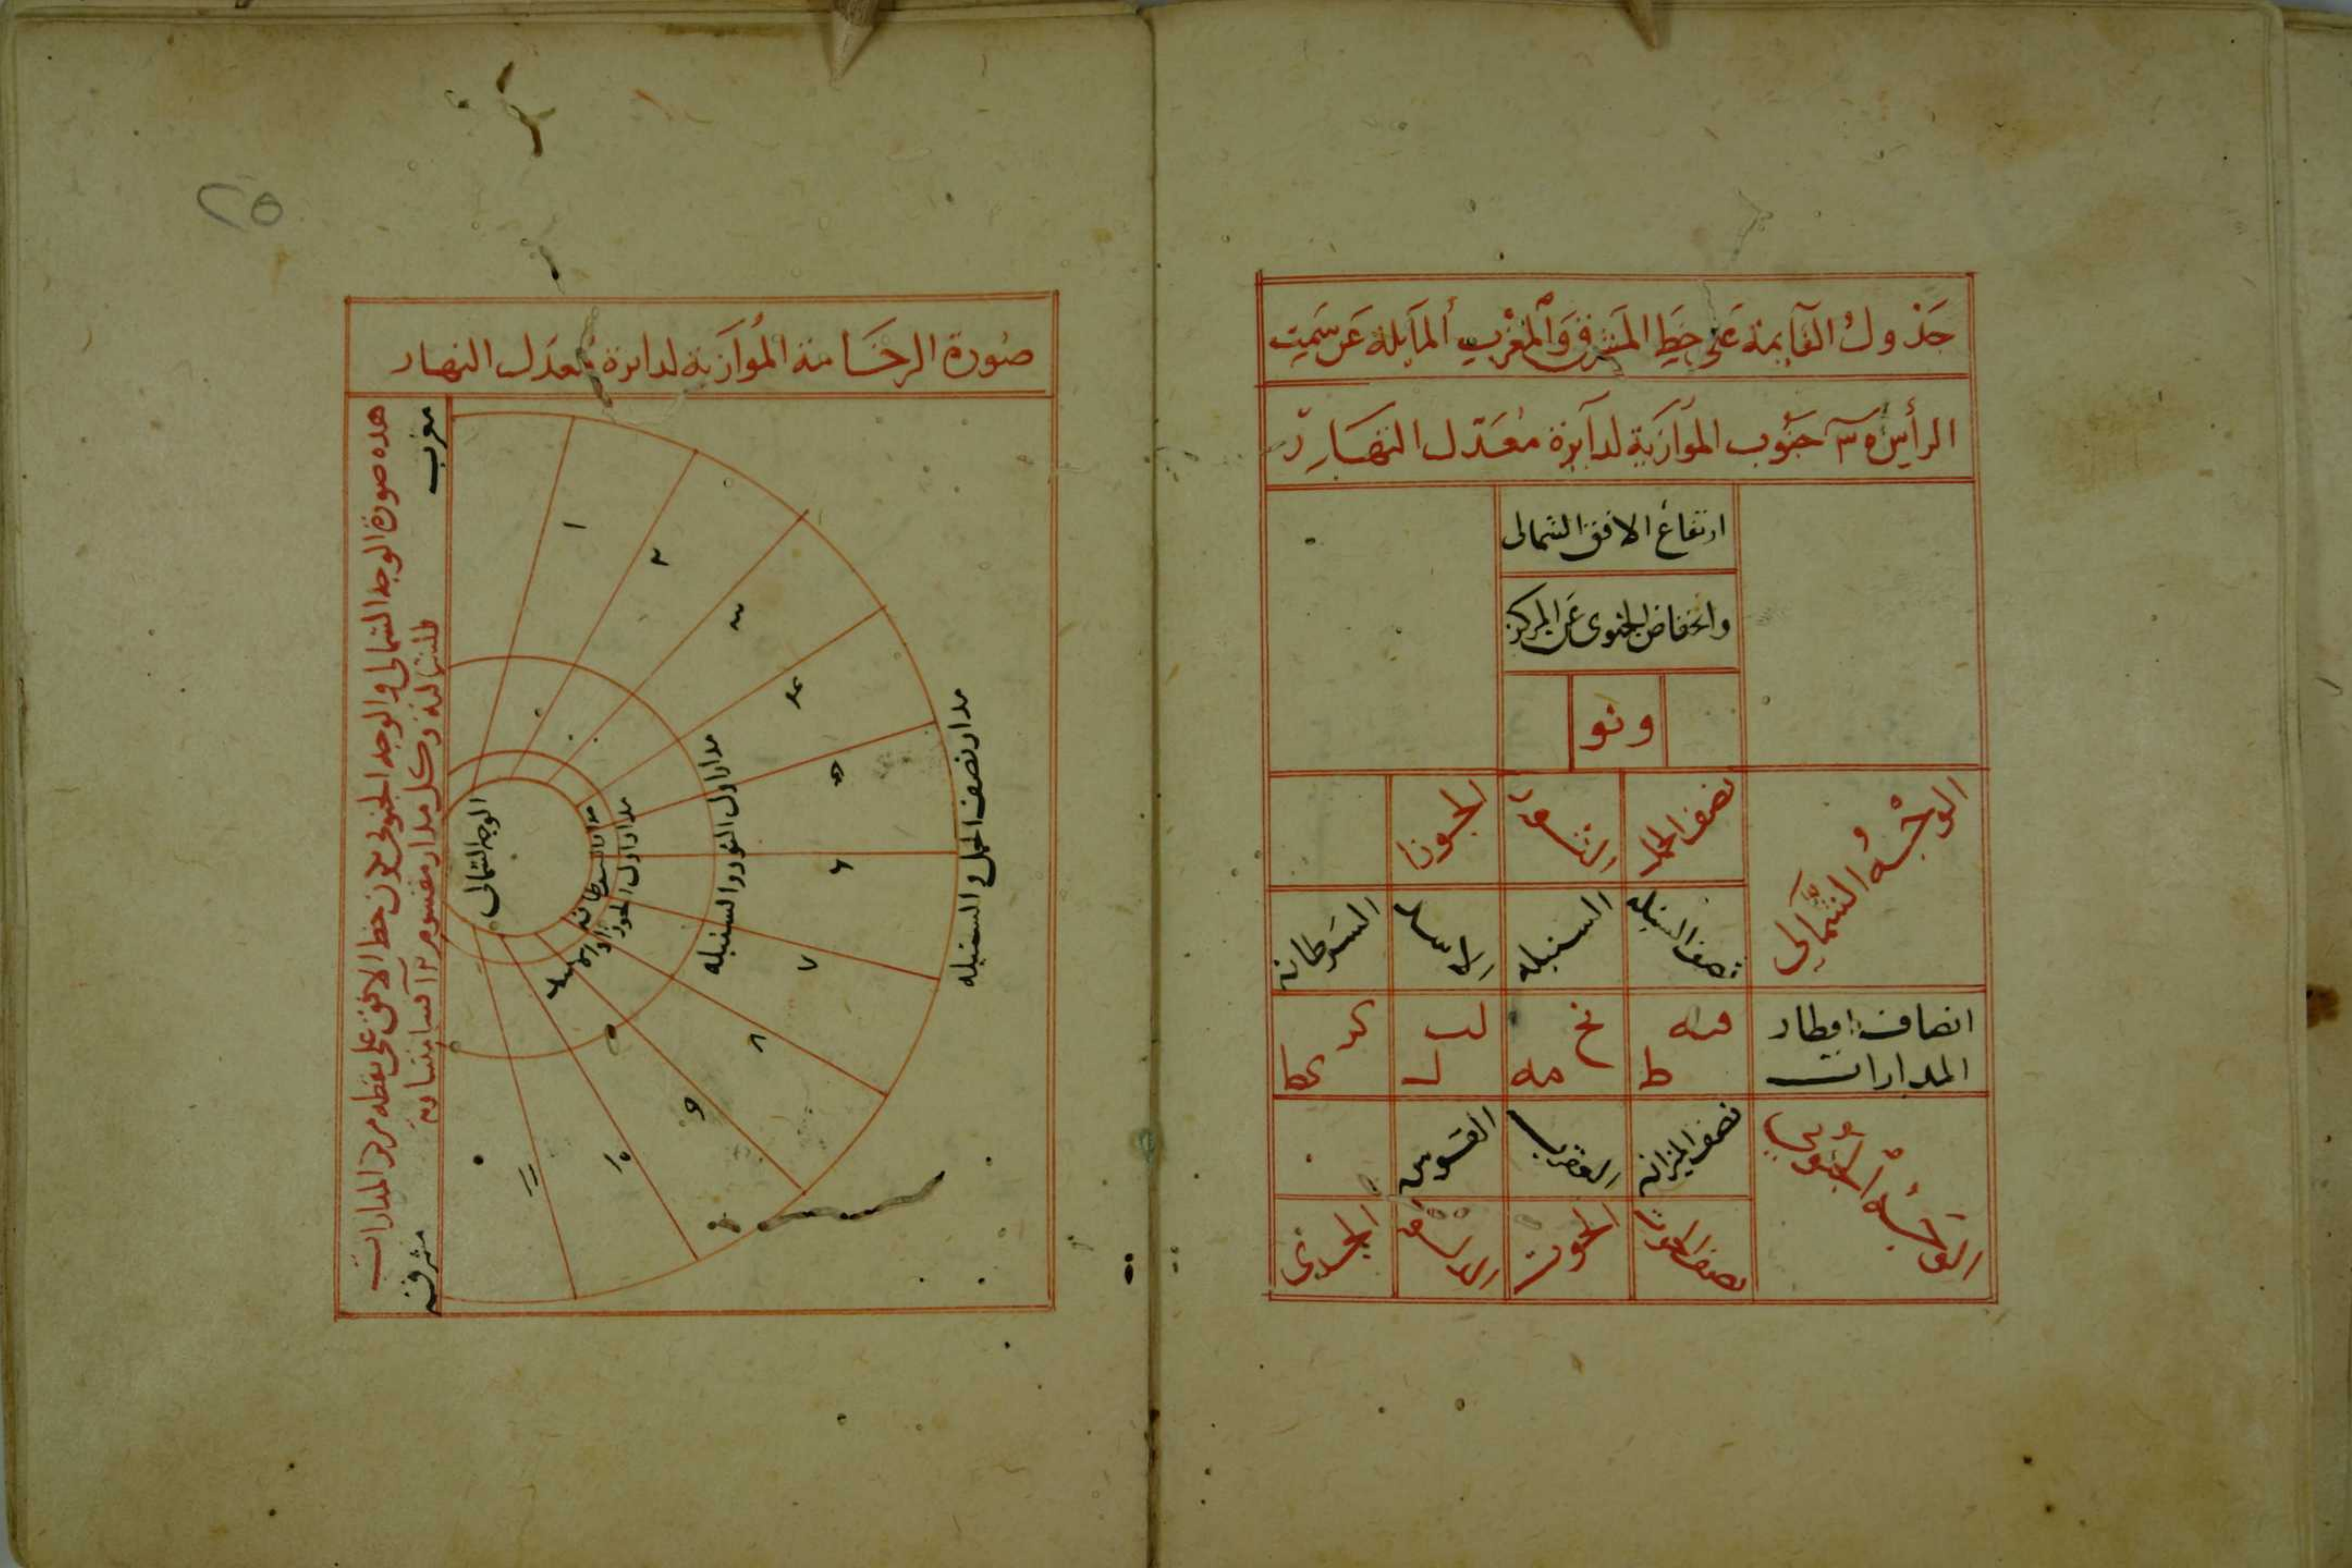 جدول القايمة على خط المشرق والمغرب المايلة عن سمت
الرأس ٣٠ جنوب الموازية لدايرة معدل النهار
ارتفاع الافق الشمالى
وانخفاض الجنوبى عن المركز
و نو
الوجه الشمالي
نصف الحمل
الثور
الجوزا
نصف السنبله
السنبله
الاسد
السرطان
انصاف اقطار
المدارات
فه ط
نح مه
لب ل
كد كط
الوجه الجنوبي
نصف الميزان
العقرب
القوس
نصف الحوت
الحوت
الدلو
الجدى
٢٥
صورة الرخامة الموازية لدايرة معدل النهار
هذه صورة الوجه الشمالى والوجه الجنوبى يكون خط الافق على نقطة مركز المدارات
كل مدار مقسوم ١٢ قسما متساوية
مغرب
مشرق
الوجه الشمالى
مدار السرطان
مدار اول الجوزا والاسد
مدار اول الثور والسنبله
مدار نصف الحمل والسنبله
١
٢
٣
۴
۵
۶
٧
٨
٩
١٠
١١